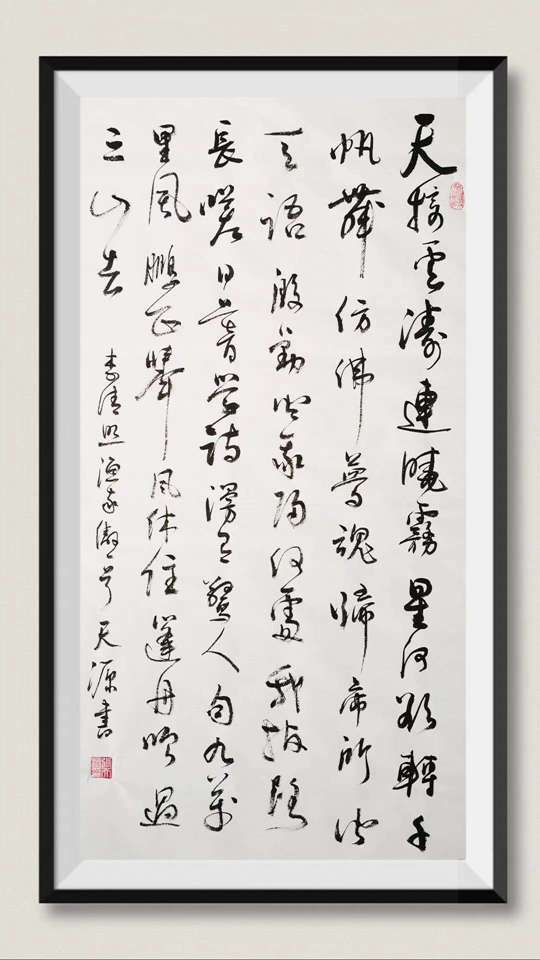 天接雲濤連曉霧星河欲轉千
帆舞仿佛夢魂歸帝所聞
天語殷勤問我歸何處我報路
長嗟日暮學詩漫有驚人句九萬
里風鵬正舉風休住蓬舟吹過
三山去
李清照漁家傲一首天源書